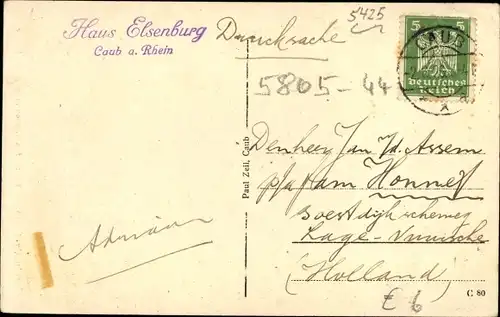 Haus Elsenburg
Caub a. Rhein
Drucksache
5425
5 5
CAUB
Deutsches
Reich
5805-44
Paul Zeil, Caub
Denheer Jan v/d. Assem
p/a fam Honnef
Soestdijkscheweg
Lage-Vuursche
(Holland)
Adriaan
C 80
£ 6